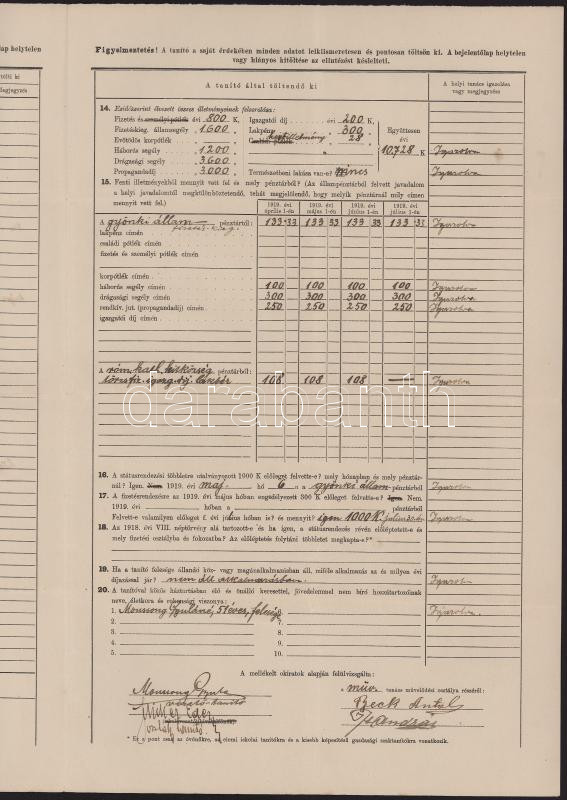 lap helytelen
ölti ki
megjegyzés
Figyelmeztetés! A tanító a saját érdekében minden adatot lelkiismeretesen és pontosan töltsön ki. A bejelentőlap helytelen
vagy hiányos kitöltése az elintézést késlelteti.
A tanító által töltendő ki
A helyi tanács igazolása
vagy megjegyzése
14. Ezidőszerint élvezett összes illetményeinek felsorolása:
Fizetés és személyi pótlék évi 800 K, Igazgatói díj évi 200 K,
Fizetéskieg. államsegély 1600 " Lakpénz 300 " Együttesen
Évötödös korpótlék " Családi pótlék 28 " évi
Háborús segély 1200 " 10.728 K Igazolva
Drágasági segély 3600 "
Propagandadíj 3000 " Természetbeni lakása van-e? nincs
15. Fenti illetményekből mennyit vett fel és mely pénztárból? (Az állampénztárból felvett javadalom
a helyi javadalomtól megkülönböztetendő, tehát megjelölendő, hogy melyik pénztárnál mily címen
mennyit vett fel.)
1919. évi április 1-én 1919. évi május 1-én 1919. évi június 1-én 1919. évi július 1-én
A gyönki állam pénztártól: 133 33 133 33 133 33 133 33 Igazolva
lakpénz címén
családi pótlék címén
fizetés és személyi pótlék címén
korpótlék címén
háborús segély címén 100 100 100 100 Igazolva
drágasági segély címén 300 300 300 300 Igazolva
rendkív. jut (propagandadíj) címén 250 250 250 250 Igazolva
igazgatói díj címén
A róm. kath. hitközség pénztárból:
törzsfiz. igazg. díj. lakbér 108 108 108 — Igazolva
darabanth
16. A státusrendezési többletre utalványozott 1000 K előleget felvette-e? mely hónapban és mely pénztár-
nál? Igen. Nem. 1919. évi máj. hó 6 n a gyönki állam pénztárból Igazolva
17. A fizetésrendezésre az 1919. évi május hóban engedélyezett 300 K előleget felvette-e? Igen. Nem.
1919. évi hóban a pénztárból Igazolva
Felvett-e valamilyen előleget f. évi július hóban is? és mennyit? igen 1000 K. július 30-án Igazolva
18. Az 1918. évi VIII. néptörvény alá tartozott-e és ha igen, a státusrendezés révén előléptetett-e és
mely fizetési osztályba és fokozatba? Az előléptetés folytáni többletet megkapta-e?*
19. Ha a tanító felesége állandó köz- vagy magánalkalmazásban áll, miféle alkalmazás az és milyen évi
díjazással jár? nem áll alkalmazásban. Igazolva
20. A tanítóval közös háztartásban élő és önálló keresettel, jövedelemmel nem bíró hozzátartozóinak
neve, életkora és rokonsági viszonya: Igazolva.
1. Moussong Gyuláné, 51 éves, felesége 6.
2. 7.
3. 8.
4. 9.
5. 10.
A mellékelt okiratok alapján felülvizsgálta:
Moussong Gyula
a műv. tanács művelődési osztálya részéről:
Beck Antal
András
* Ez a pont csak az óvónőkre, az elemi iskolai tanítókra és a kisebb képesítésű gazdasági szaktanítókra vonatkozik.